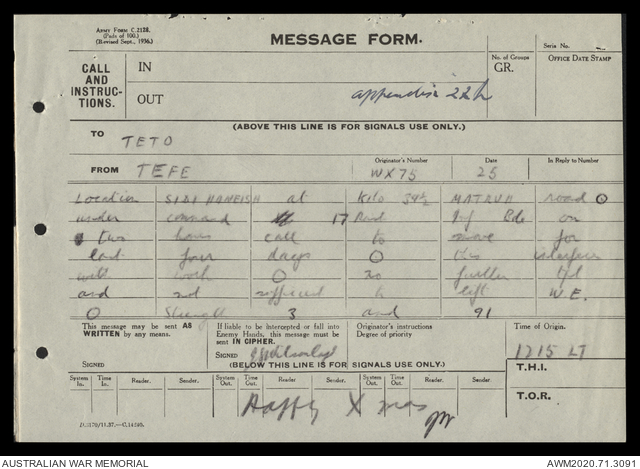 Army Form C.2128.
(Pads of 100.)
(Revised Sept., 1936.)
MESSAGE FORM.
Serial No.
CALL AND INSTRUCTIONS.
IN
No. of Groups
GR.
OFFICE DATE STAMP
OUT
appendix 22h
(ABOVE THIS LINE IS FOR SIGNALS USE ONLY.)
TO TETO
FROM TEFE
Originator's Number
WX75
Date
25
In Reply to Number
Location SIDI HANEISH at Kilo 39½ MATRUH road
under command 17 Ind Inf Bde on
two hours call to move for
last four days this
will work 20 further
and not sufficient to lift W.E.
Strength 3 and 91
This message may be sent AS WRITTEN by any means.
SIGNED
If liable to be intercepted or fall into Enemy Hands, this message must be sent IN CIPHER.
SIGNED
Originator's instructions
Degree of priority
Time of Origin.
1215 LT
(BELOW THIS LINE IS FOR SIGNALS USE ONLY.)
T.H.I.
System In.
Time In.
Reader.
Sender.
System Out.
Time Out.
Reader.
Sender.
System Out.
Time Out.
Reader.
Sender.
T.O.R.
Happy Xmas
AUSTRALIAN WAR MEMORIAL
AWM2020.71.3091